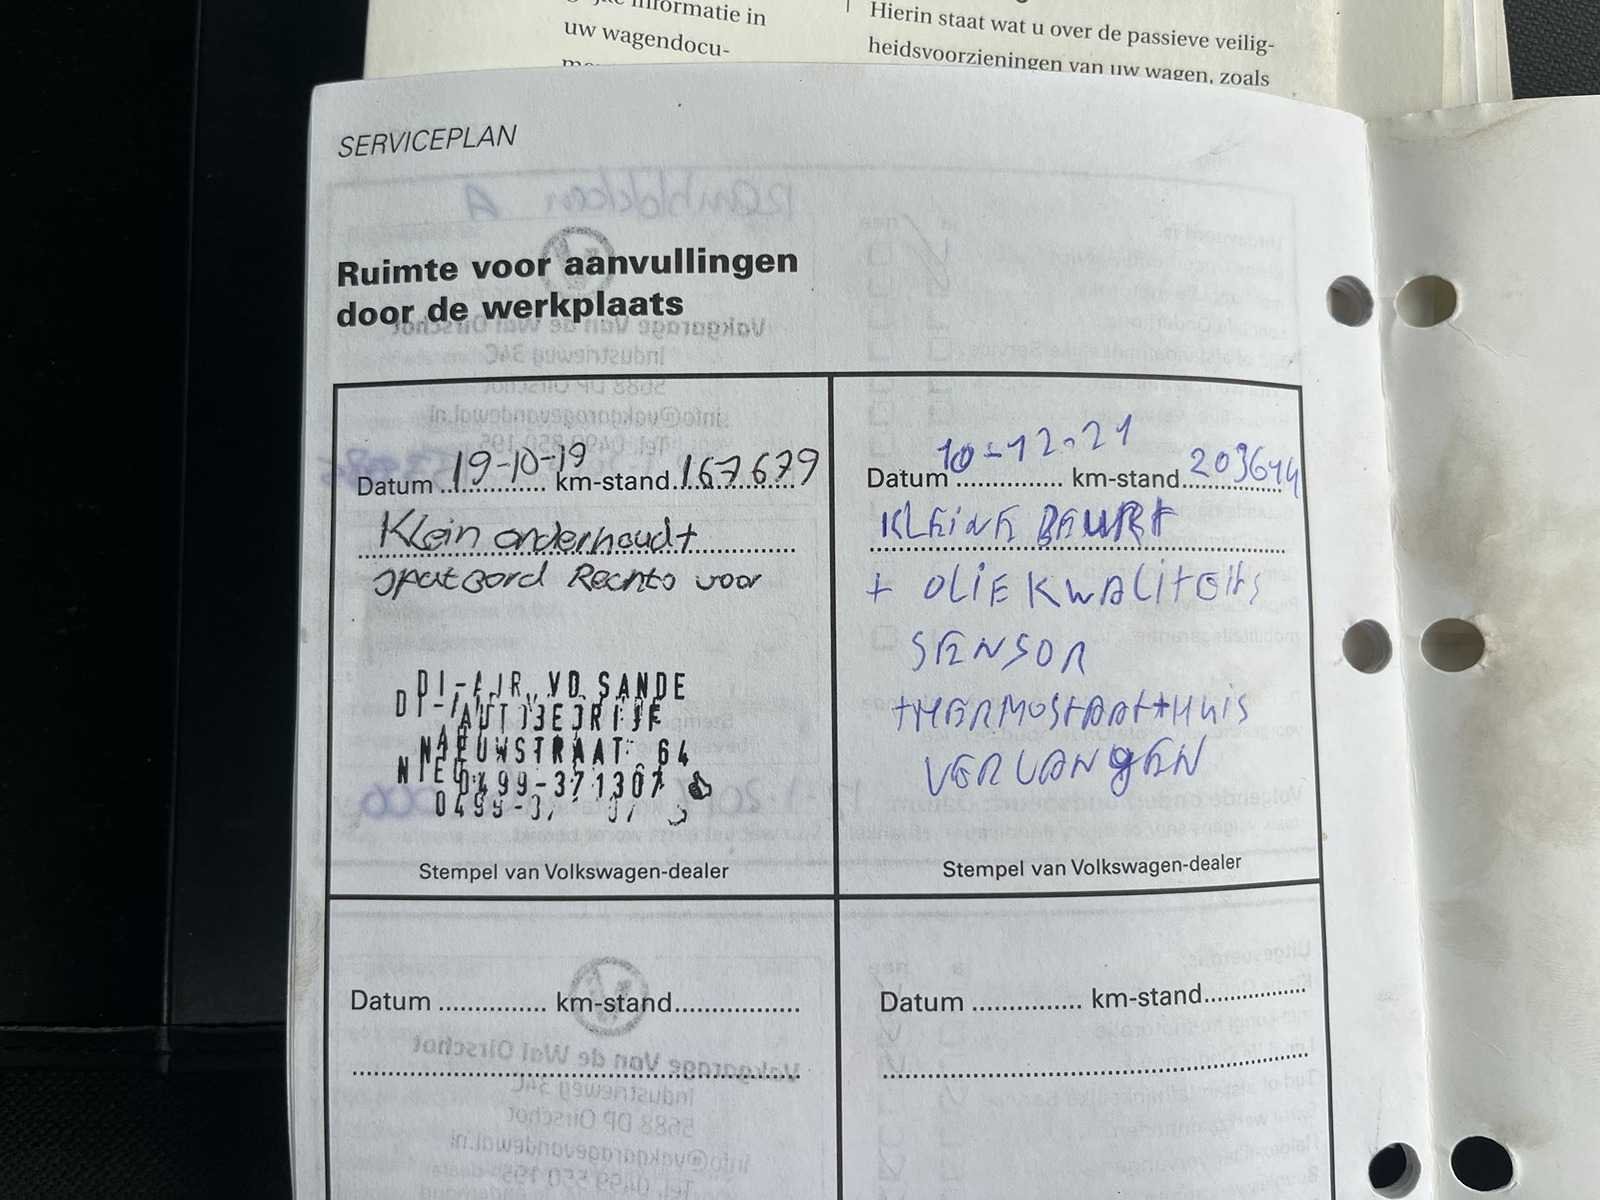 informatie in
uw wagendocu-
Hierin staat wat u over de passieve veilig-
heidsvoorzieningen van uw wagen, zoals
SERVICEPLAN
Ruimte voor aanvullingen
door de werkplaats
Datum 19-10-19 km-stand 167679
Klein onderhoudt
spatbord Rechts voor
DI-AIR VD SANDE
AUTOBEDRIJF
NIEUWSTRAAT 64
0499-371307
Stempel van Volkswagen-dealer
Datum 10-12-21 km-stand 203644
KLEINE BEURT
+ OLIE KWALITEITS
SENSOR
THERMOSTAAT+HUIS
VERVANGEN
Stempel van Volkswagen-dealer
Datum ............... km-stand..................
Datum ............... km-stand..................